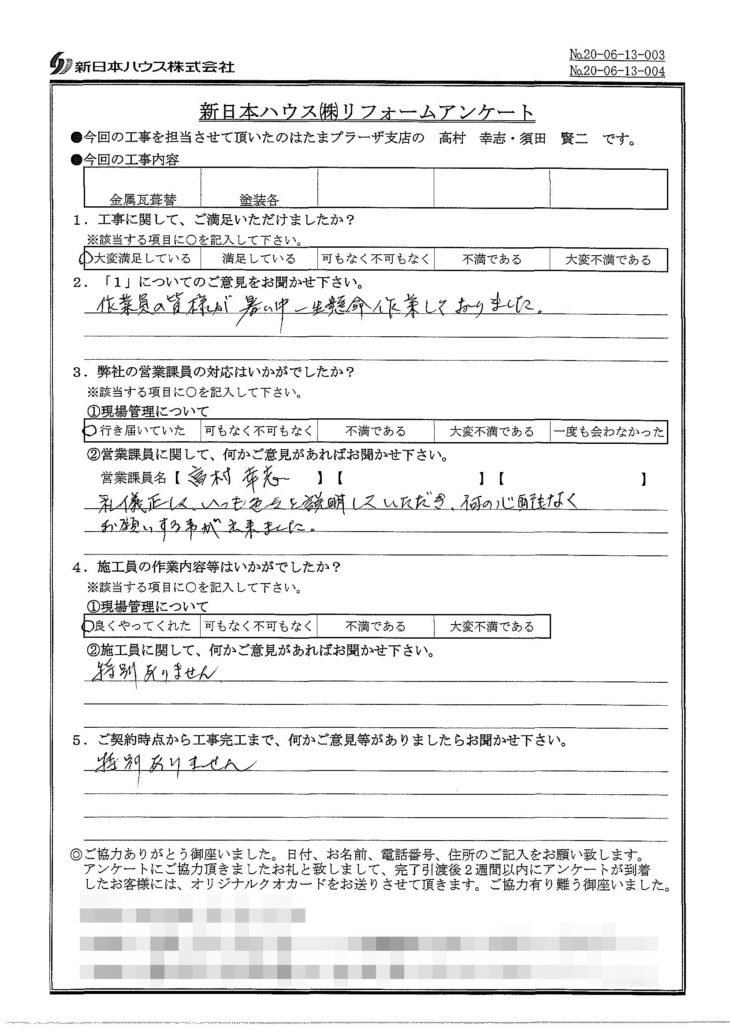 新日本ハウス株式会社
No.20-06-13-003
No.20-06-13-004
新日本ハウス㈱リフォームアンケート
●今回の工事を担当させて頂いたのはたまプラーザ支店の 高村 幸志・須田 賢二 です。
●今回の工事内容
金属瓦葺替 塗装各
1．工事に関して、ご満足いただけましたか？
※該当する項目に○を記入して下さい。
○大変満足している 満足している 可もなく不可もなく 不満である 大変不満である
2．「1」についてのご意見をお聞かせ下さい。
作業員の皆様が暑い中一生懸命作業しておりました。
3．弊社の営業課員の対応はいかがでしたか？
※該当する項目に○を記入して下さい。
①現場管理について
○行き届いていた 可もなく不可もなく 不満である 大変不満である 一度も会わなかった
②営業課員に関して、何かご意見があればお聞かせ下さい。
営業課員名【 高村 幸志 】【 】【 】
礼儀正しく、いつも色々と説明していただき、何の心配もなく
お願いする事が出来ました。
4．施工員の作業内容等はいかがでしたか？
※該当する項目に○を記入して下さい。
①現場管理について
○良くやってくれた 可もなく不可もなく 不満である 大変不満である
②施工員に関して、何かご意見があればお聞かせ下さい。
特別ありません
5．ご契約時点から工事完工まで、何かご意見等がありましたらお聞かせ下さい。
特別ありません
◎ご協力ありがとう御座いました。日付、お名前、電話番号、住所のご記入をお願い致します。
アンケートにご協力頂きましたお礼と致しまして、完了引渡後２週間以内にアンケートが到着
したお客様には、オリジナルクオカードをお送りさせて頂きます。ご協力有り難う御座いました。